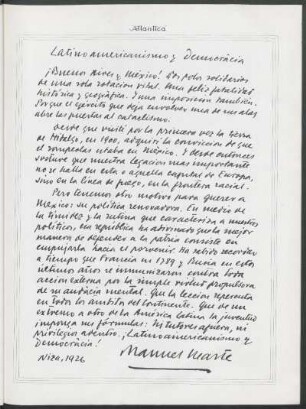 Atlántica
Latinoamericanismo y Democracia
¡Buenos Aires y México! Dos polos solidarios
de una sola rotación vital. Una feliz fatalidad
histórica y geográfica. Y una imposición también.
Porque el ejército que deja envolver una de sus alas
abre las puertas al cataclismo.
Desde que visité por la primera vez la tierra
de Hidalgo, en 1900, adquirí la convicción de que
el rompeolas estaba en México. Y desde entonces
sostuve que nuestra legación más importante
no se halla en esta o aquella capital de Europa,
sino en la línea de fuego, en la frontera racial.
Pero tenemos otro motivo para querer a
México: su política renovadora. En medio de
la timidez y la rutina que caracteriza a nuestros
políticos, esa república ha adivinado que la mejor
manera de defender a la patria consiste en
empujarla hacia el porvenir. Ha sabido recordar
a tiempo que Francia en 1789 y Rusia en estos
últimos años se inmunizaron contra toda
acción externa por la simple virtud propulsora
de su audacia mental. Que la lección repercuta
en todo los ámbitos del continente. Que de un
extremo a otro de la América latina la juventud
imponga mis fórmulas: Ni tutores afuera, ni
privilegios adentro. ¡Latinoamericanismo y
Democracia!
Niza, 1926
Manuel Ugarte